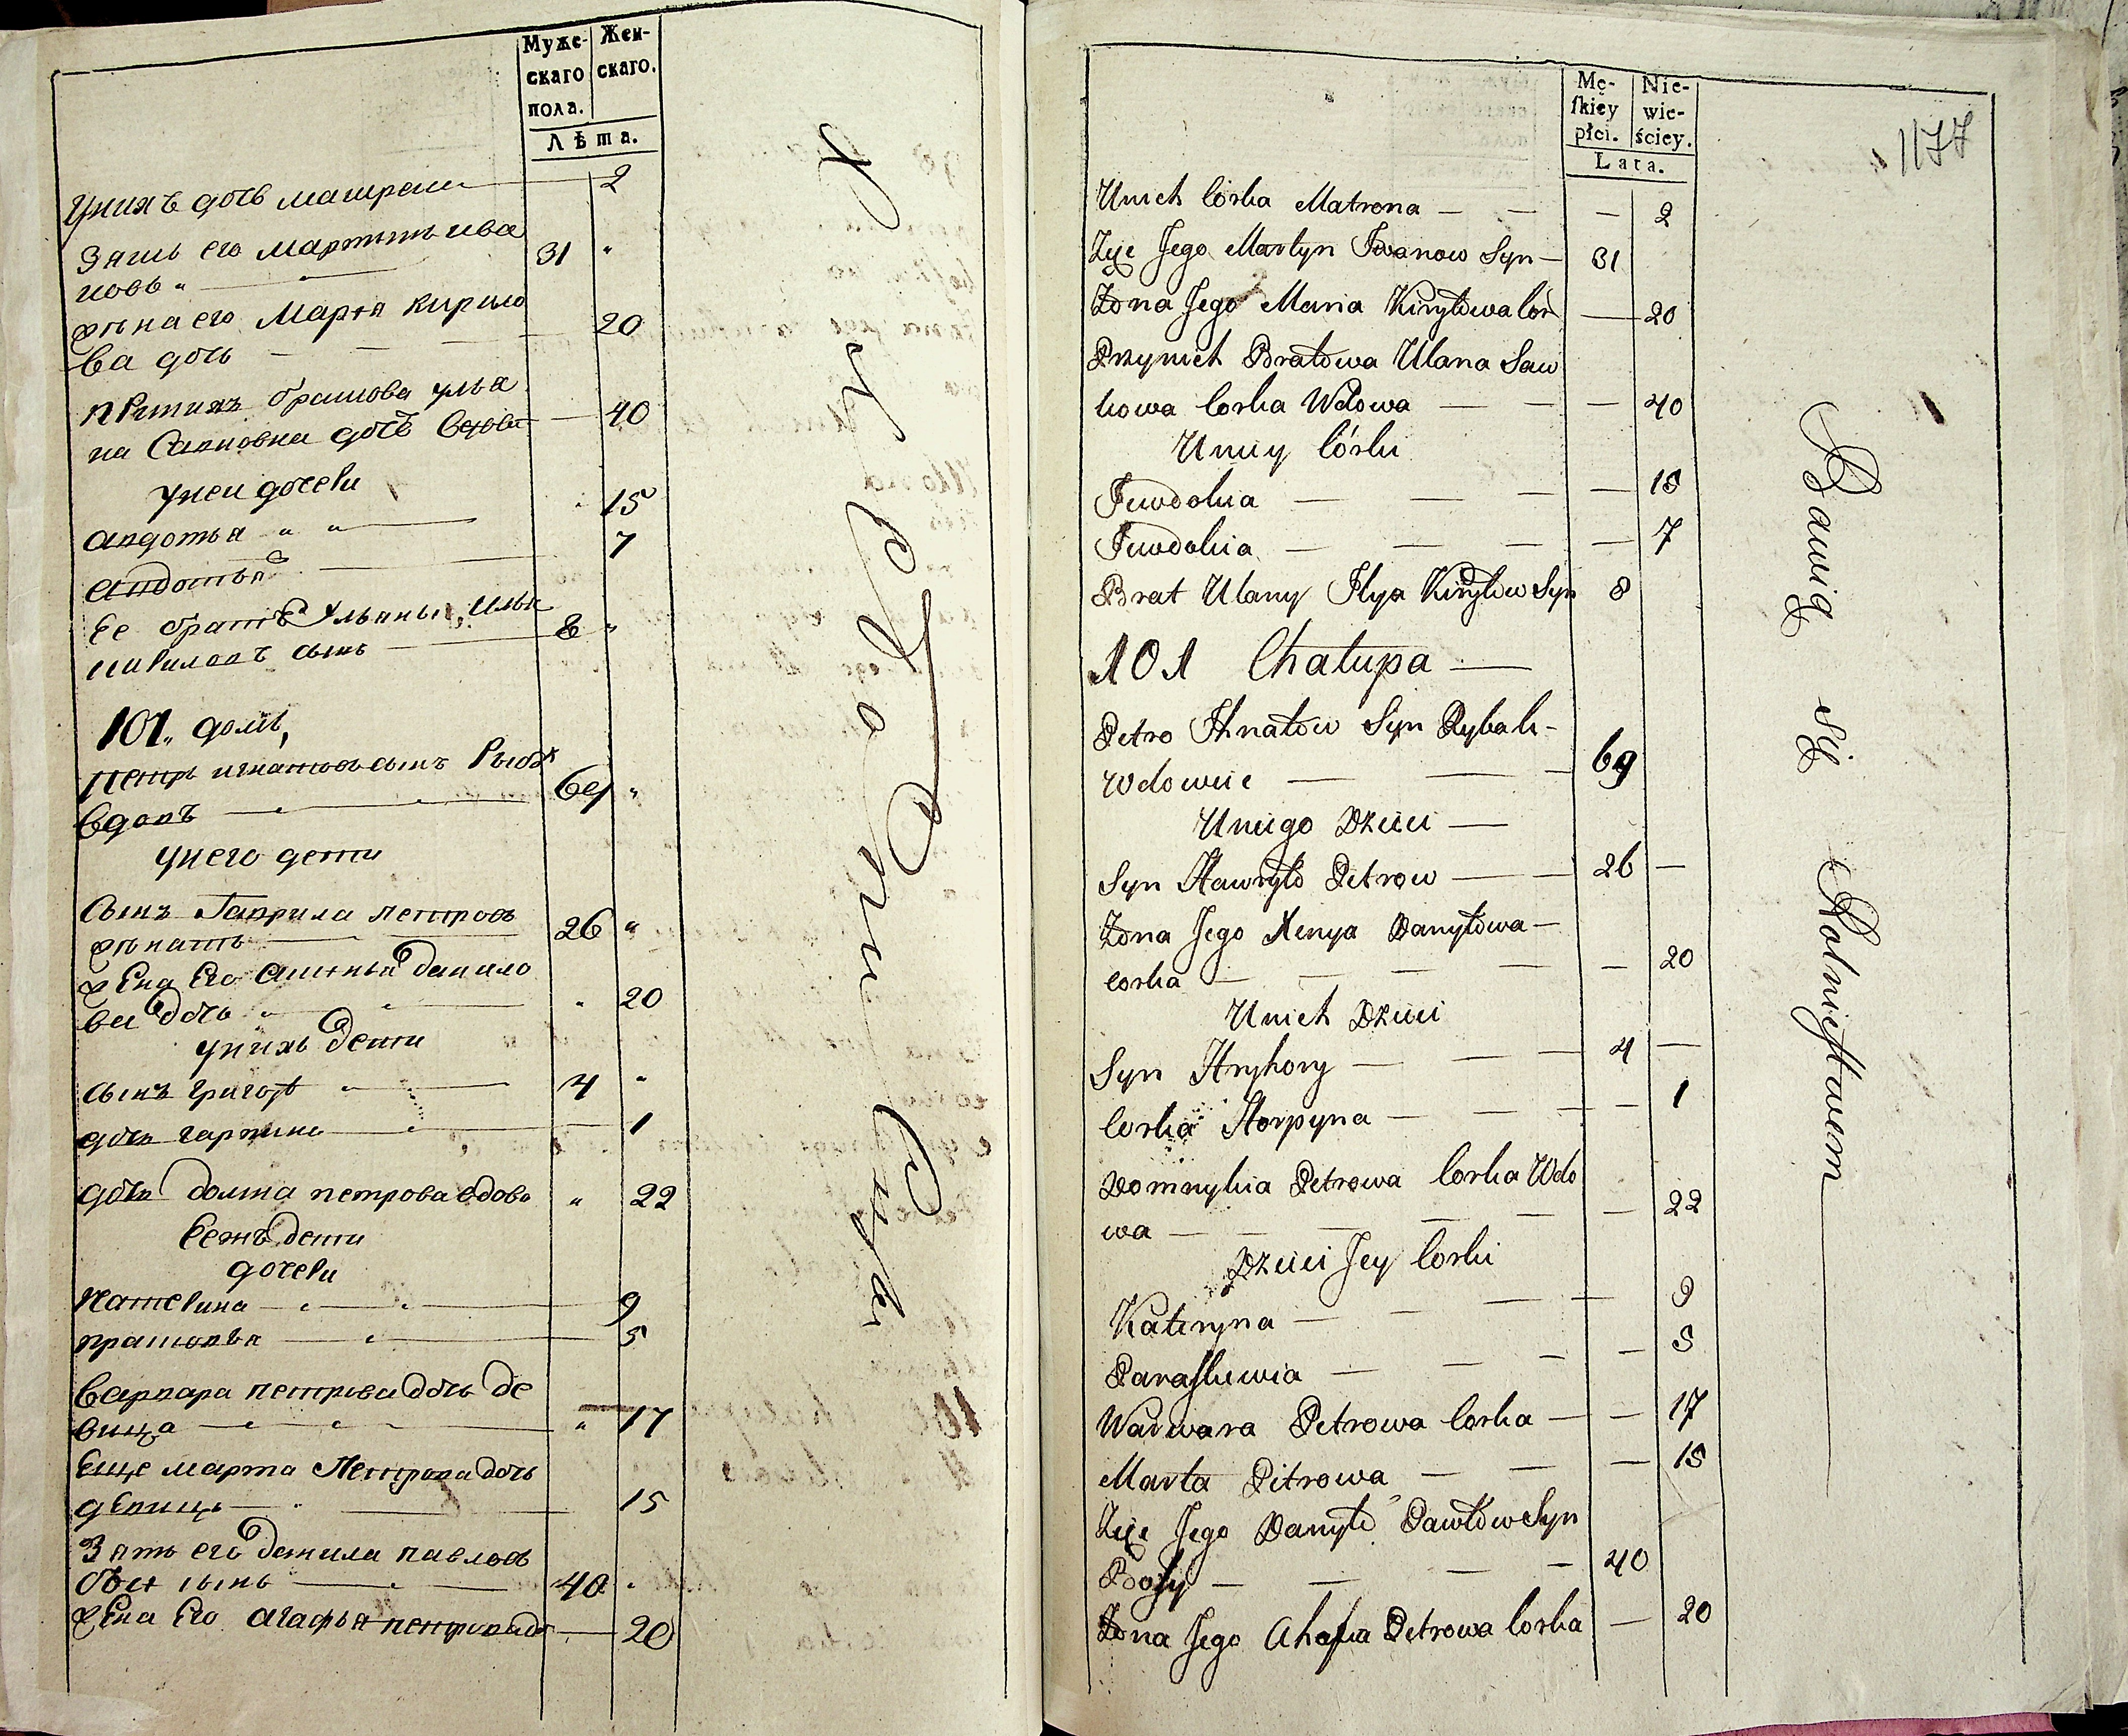 Муже-
скаго
пола.
Жен-
скаго.
Лѣта.
унихъ дочь матрена 2
Зять его мартинъ ива
новъ 31
жена его Марѳа кирило
ва дочь 20
при нихъ братова улья
на Савковна дочь вдова 40
унеи дочери
авдотья 15
авдотья 7
ее братъ Ульяны, Илья
кириловъ сынъ 8
101. домъ,
петръ игнатовъ сынъ Рыбак
вдовъ 69
унего дети
Сынъ Гаврила петровъ
женатъ 26
жена Его аксинья данило
ва дочь 20
унихъ дети
сынъ григорѣ 4
дочь гарпина 1
дочь домна петрова вдова 22
Ееже дети
дочери
Катерина 9
прасковья 5
варвара петрова дочь де
вица 17
Еще марта Петрова дочь
девица 15
Зять его данила павловъ
босы сынъ 40
жена Его агафья петрова до 20
Mę-
ſkiey
płci.
Nie-
wie-
ściey.
Lata.
1177
Unich Corka Matrona 2
Zięć Jego Martyn Iwanow Syn 31
Żona Jego Maria Kiryłowa Cor 20
Przynich Bratowa Ulana Saw
kowa Corka Wdowa 40
Uniey Córki
Juwdokia 15
Juwdokia 7
Brat Ulany Ilya Kiryłow Syn 8
101 Chałupa
Petro Hnatow Syn Rybak
Wdowiec 69
Uniego Dzieci
Syn Hawryło Petrow 26
Żona Jego Xenya Danyłowa
Corka 20
Unich Dzieci
Syn Hryhory 4
Corka Horpyna 1
Domnykia Petrowa Corka Wdo
wa 22
Dzieci Jey Corki
Kateryna 9
Paraſkewia 5
Warwara Petrowa Corka 17
Marta Petrowa 15
Zięć Jego Danyło Pawłow Syn
Bosy 40
Żona Jego Ahafia Petrowa Corka 20
Bawią się Rolnictwem